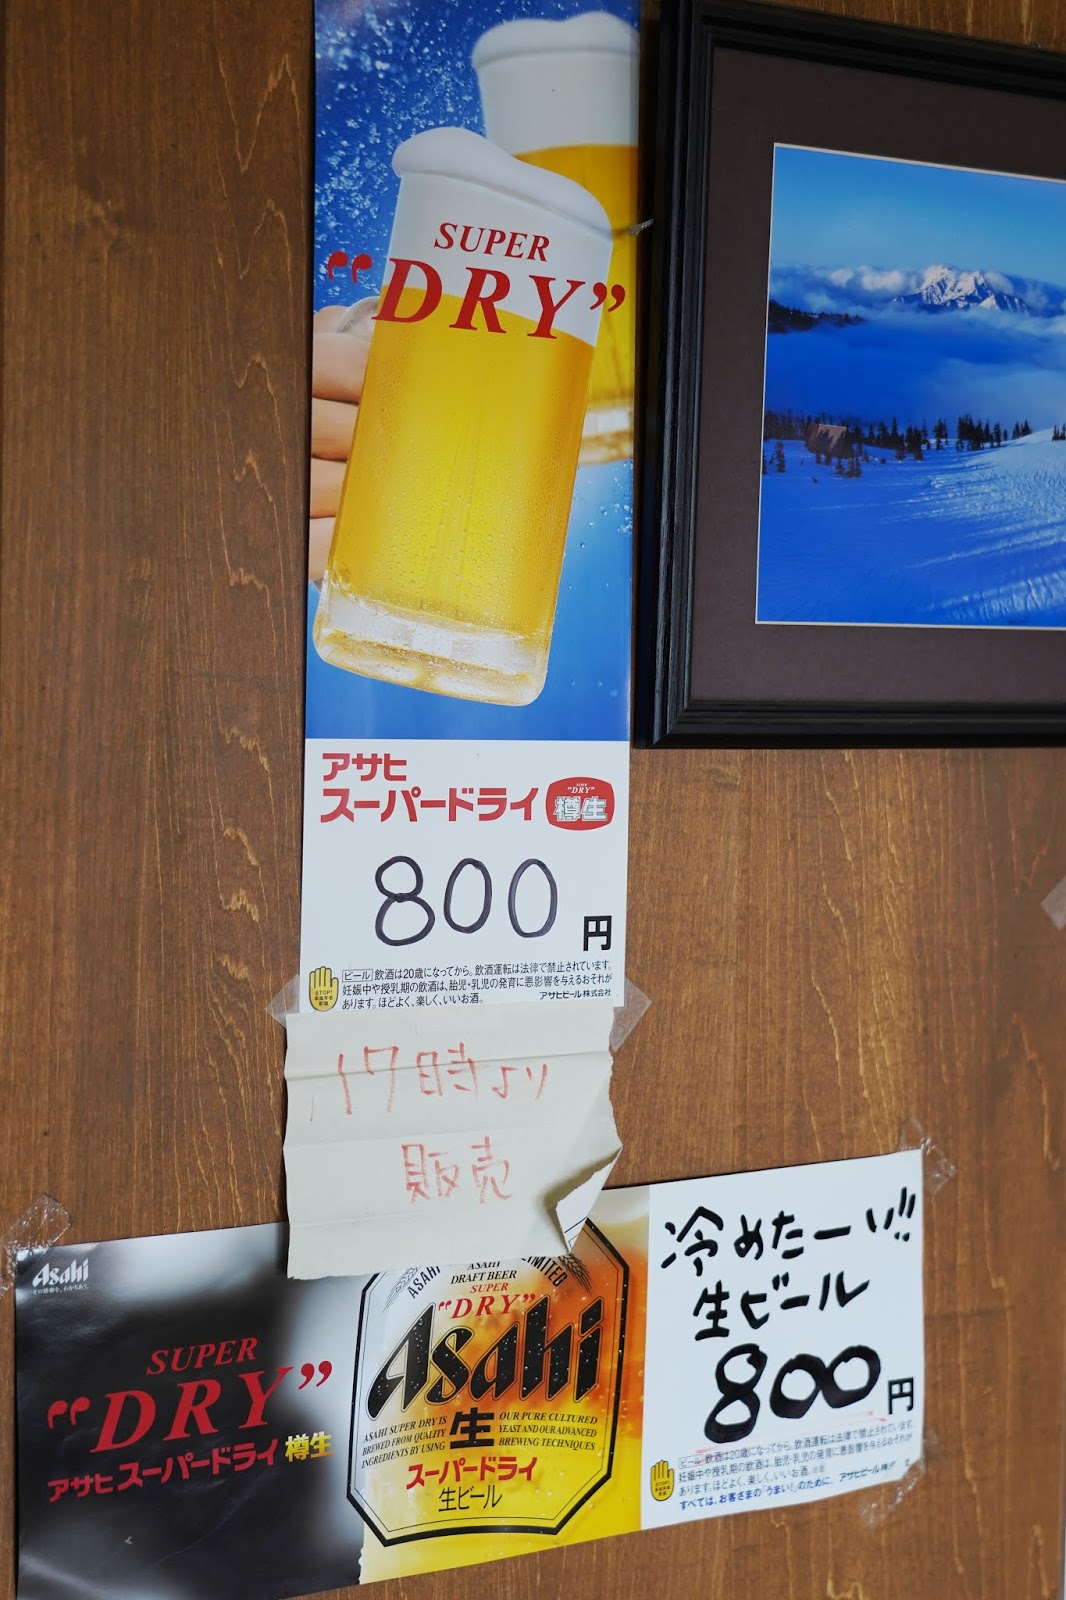 SUPER
"DRY"
アサヒ
スーパードライ
SUPER
"DRY"
樽生
800円
STOP!
ビール 飲酒は20歳になってから。飲酒運転は法律で禁止されています。
妊娠中や授乳期の飲酒は、胎児・乳児の発育に悪影響を与えるおそれが
あります。ほどよく、楽しく、いいお酒。 アサヒビール株式会社
17時より
販売
Asahi
SUPER
"DRY"
アサヒ スーパードライ 樽生
ASAHI
DRAFT BEER
SUPER
"DRY"
Asahi
ASAHI SUPER DRY IS
BREWED FROM QUALITY
INGREDIENTS BY USING
生
OUR PURE CULTURED
YEAST AND OUR ADVANCED
BREWING TECHNIQUES
スーパードライ
生ビール
冷めたーい!!
生ビール
800円
STOP!
ビール 飲酒は20歳になってから。飲酒運転は法律で禁止されています。
妊娠中や授乳期の飲酒は、胎児・乳児の発育に悪影響を与えるおそれが
あります。ほどよく、楽しく、いいお酒。 アサヒビール株
すべては、お客さまの「うまい!」のために。